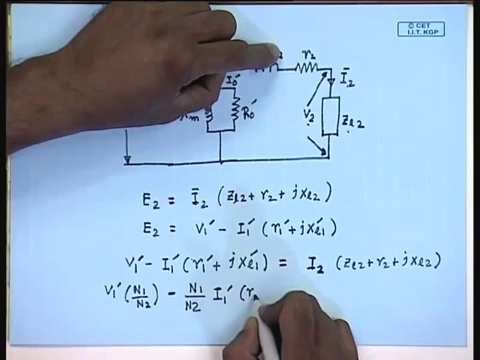 © CET
I.I.T. KGP
r₂
I₀′ Ī₂
R₀′ V₂ Z_ℓ2
E₂ = Ī₂ (Z_ℓ2 + r₂ + jx_ℓ2)
E₂ = V₁′ - I₁′ (r₁′ + jx_ℓ1′)
V₁′ - I₁′ (r₁′ + jx_ℓ1′) = I₂ (Z_ℓ2 + r₂ + jx_ℓ2)
V₁′ (N₁/N₂) - N₁/N₂ I₁′ (r